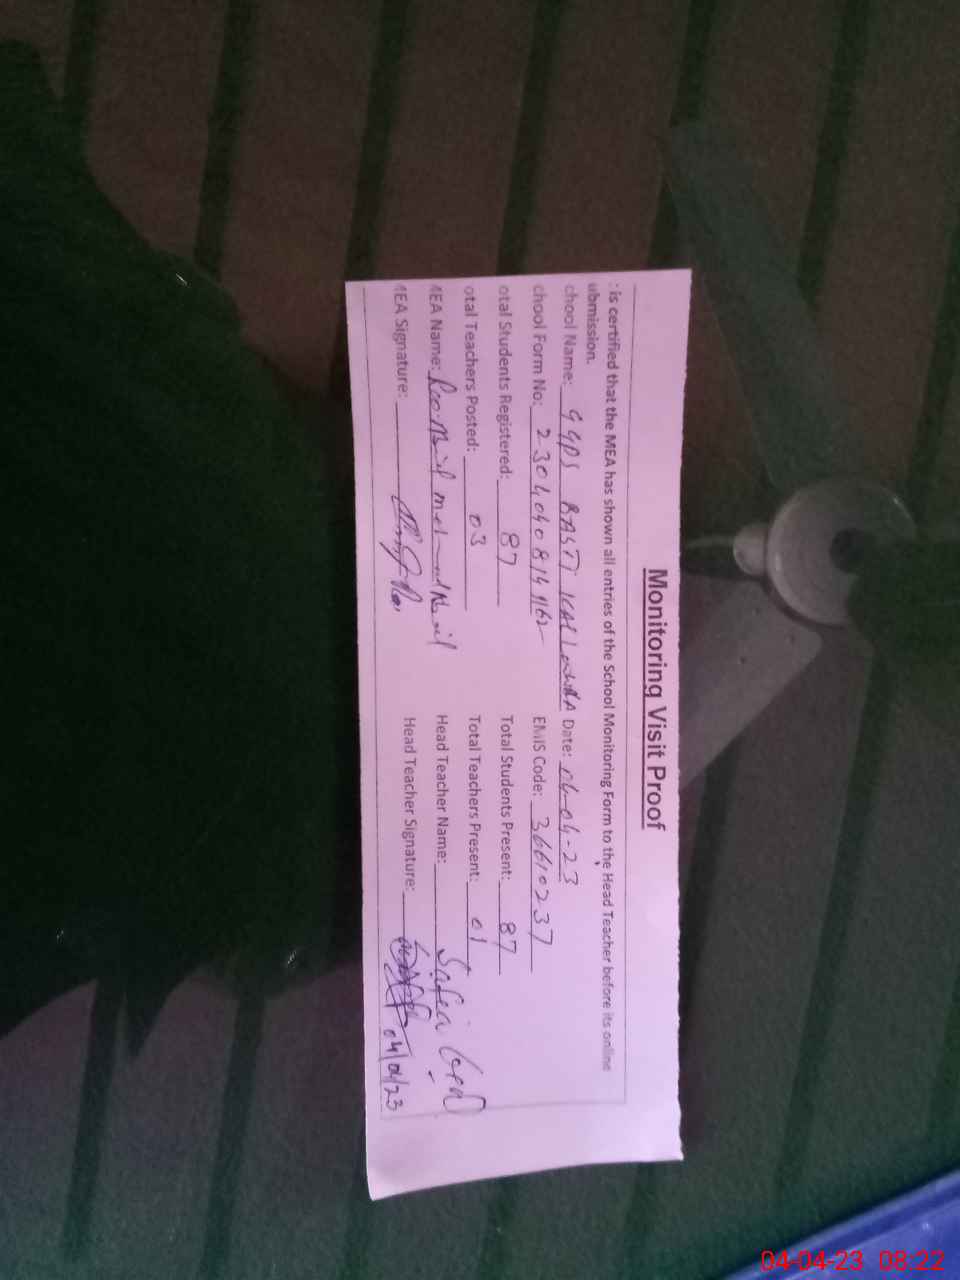 Monitoring Visit Proof
: is certified that the MEA has shown all entries of the School Monitoring Form to the Head Teacher before its online
ubmission.
chool Name: GGPS BASTI Date: 04-04-23
chool Form No: EMIS Code: 36610237
otal Students Registered: 87 Total Students Present: 87
otal Teachers Posted: 03 Total Teachers Present: 01
MEA Name: Head Teacher Name: Safia
MEA Signature: Head Teacher Signature: 04/04/23
04-04-23 08:22